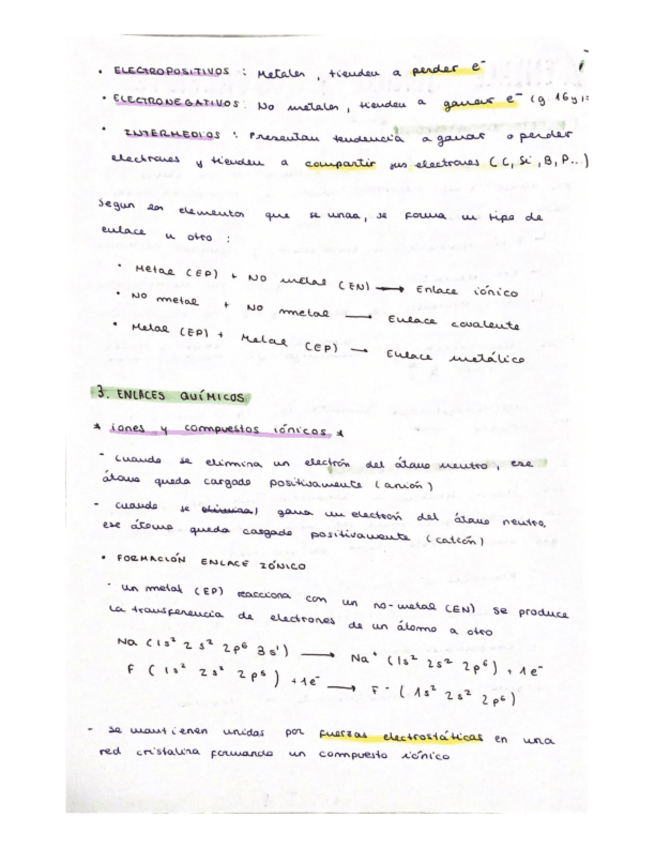 • ELECTROPOSITIVOS : Metales, tienden a perder e⁻
• ELECTRONEGATIVOS: No metales, tienden a ganar e⁻ (g. 16 y
• INTERMEDIOS : Presentan tendencia a ganar o perder
electrones y tienden a compartir sus electrones (C, Si, B, P...)
Segun los elementos que se unan, se forma un tipo de
enlace u otro :
• Metal (EP) + NO metal (EN) → Enlace iónico
• NO metal + NO metal → Enlace covalente
• Metal (EP) + Metal (EP) → Enlace metálico
3. ENLACES QUÍMICOS
* iones y compuestos iónicos *
- cuando se elimina un electrón del átomo neutro, ese
átomo queda cargado positivamente (anión)
- cuando se gana un electron del átomo neutro,
ese átomo queda cargado positivamente (catión)
• FORMACIÓN ENLACE IÓNICO
· un metal (EP) reacciona con un no-metal (EN) se produce
la transferencia de electrones de un átomo a otro
Na (1s² 2s² 2p⁶ 3s¹) → Na⁺ (1s² 2s² 2p⁶) + 1e⁻
F (1s² 2s² 2p⁵) + 1e⁻ → F⁻ (1s² 2s² 2p⁶)
- se mantienen unidas por fuerzas electrostáticas en una
red cristalina formando un compuesto iónico